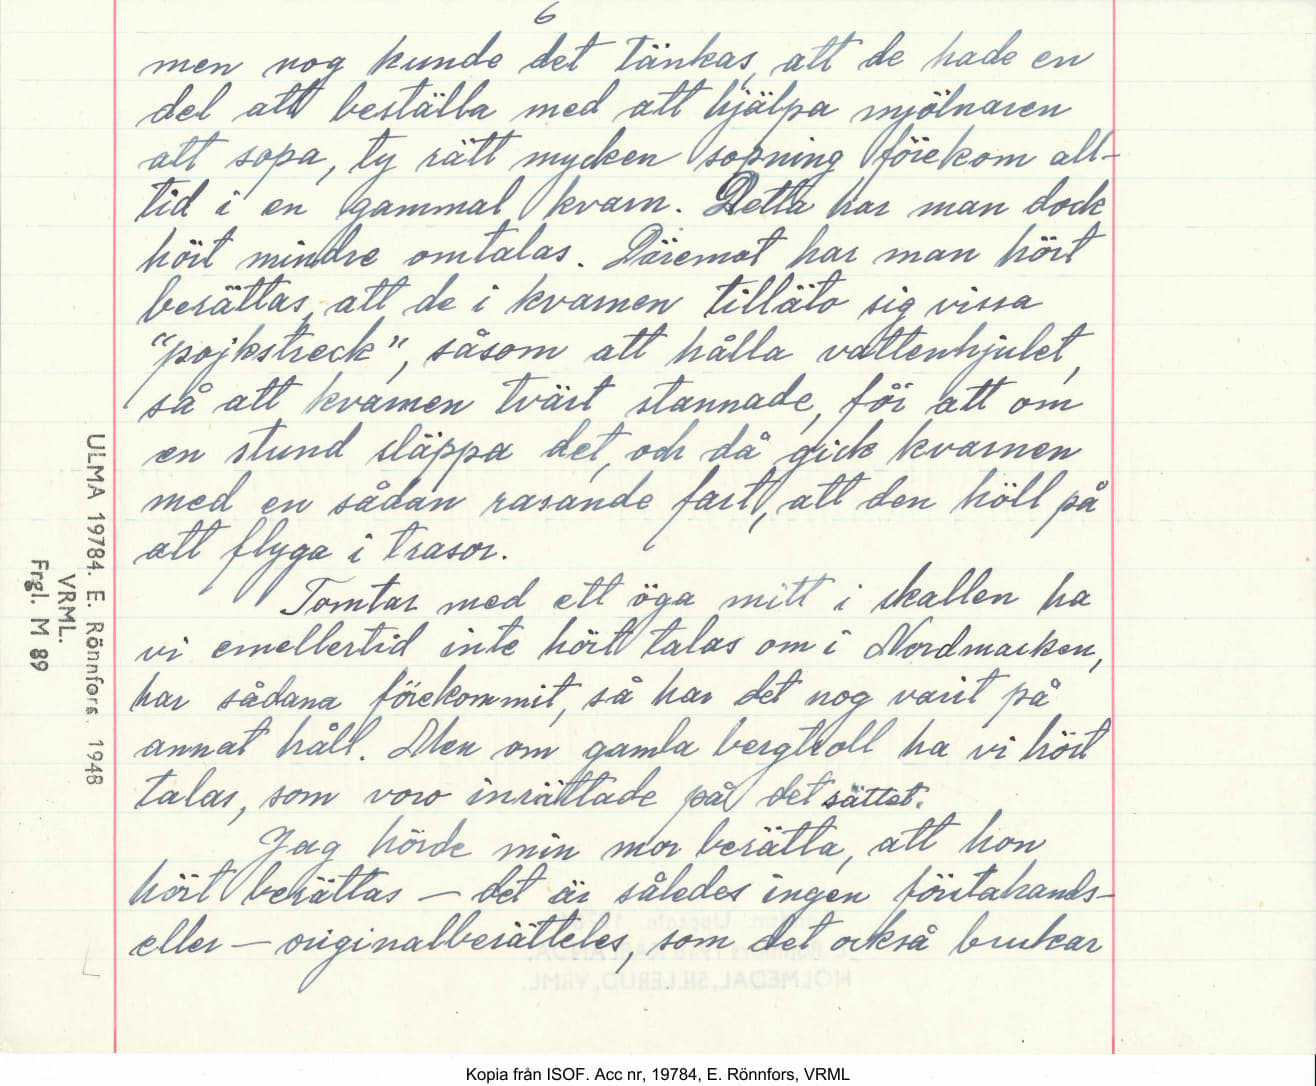 6
men nog kunde det tänkas, att de hade en
del att beställa med att hjälpa mjölnaren
att sopa, ty rätt mycken sopning förekom all-
tid i en gammal kvarn. Detta har man dock
hört mindre omtalas. Däremot har man hört
berättas, att de i kvarnen tilläto sig vissa
"pojkstreck", såsom att hålla vattenhjulet,
så att kvarnen tvärt stannade, för att om
en stund släppa det, och då gick kvarnen
med en sådan rasande fart, att den höll på
att flyga i trasor.
Tomtar med ett öga mitt i skallen ha
vi emellertid inte hört talas om i Nordmarken,
har sådana förekommit, så har det nog varit på
annat håll. Men om gamla bergtroll ha vi hört
talas, som voro inrättade på det sättet.
Jag hörde min mor berätta, att hon
hört berättas – det är således ingen förstahands-
eller – originalberättelse, som det också brukar
ULMA 19784. E. Rönnfors. 1948
VRML.
Frgl. M 89
HOLMEDAL, SILLERUD, VRML.
Kopia från ISOF. Acc nr, 19784, E. Rönnfors, VRML